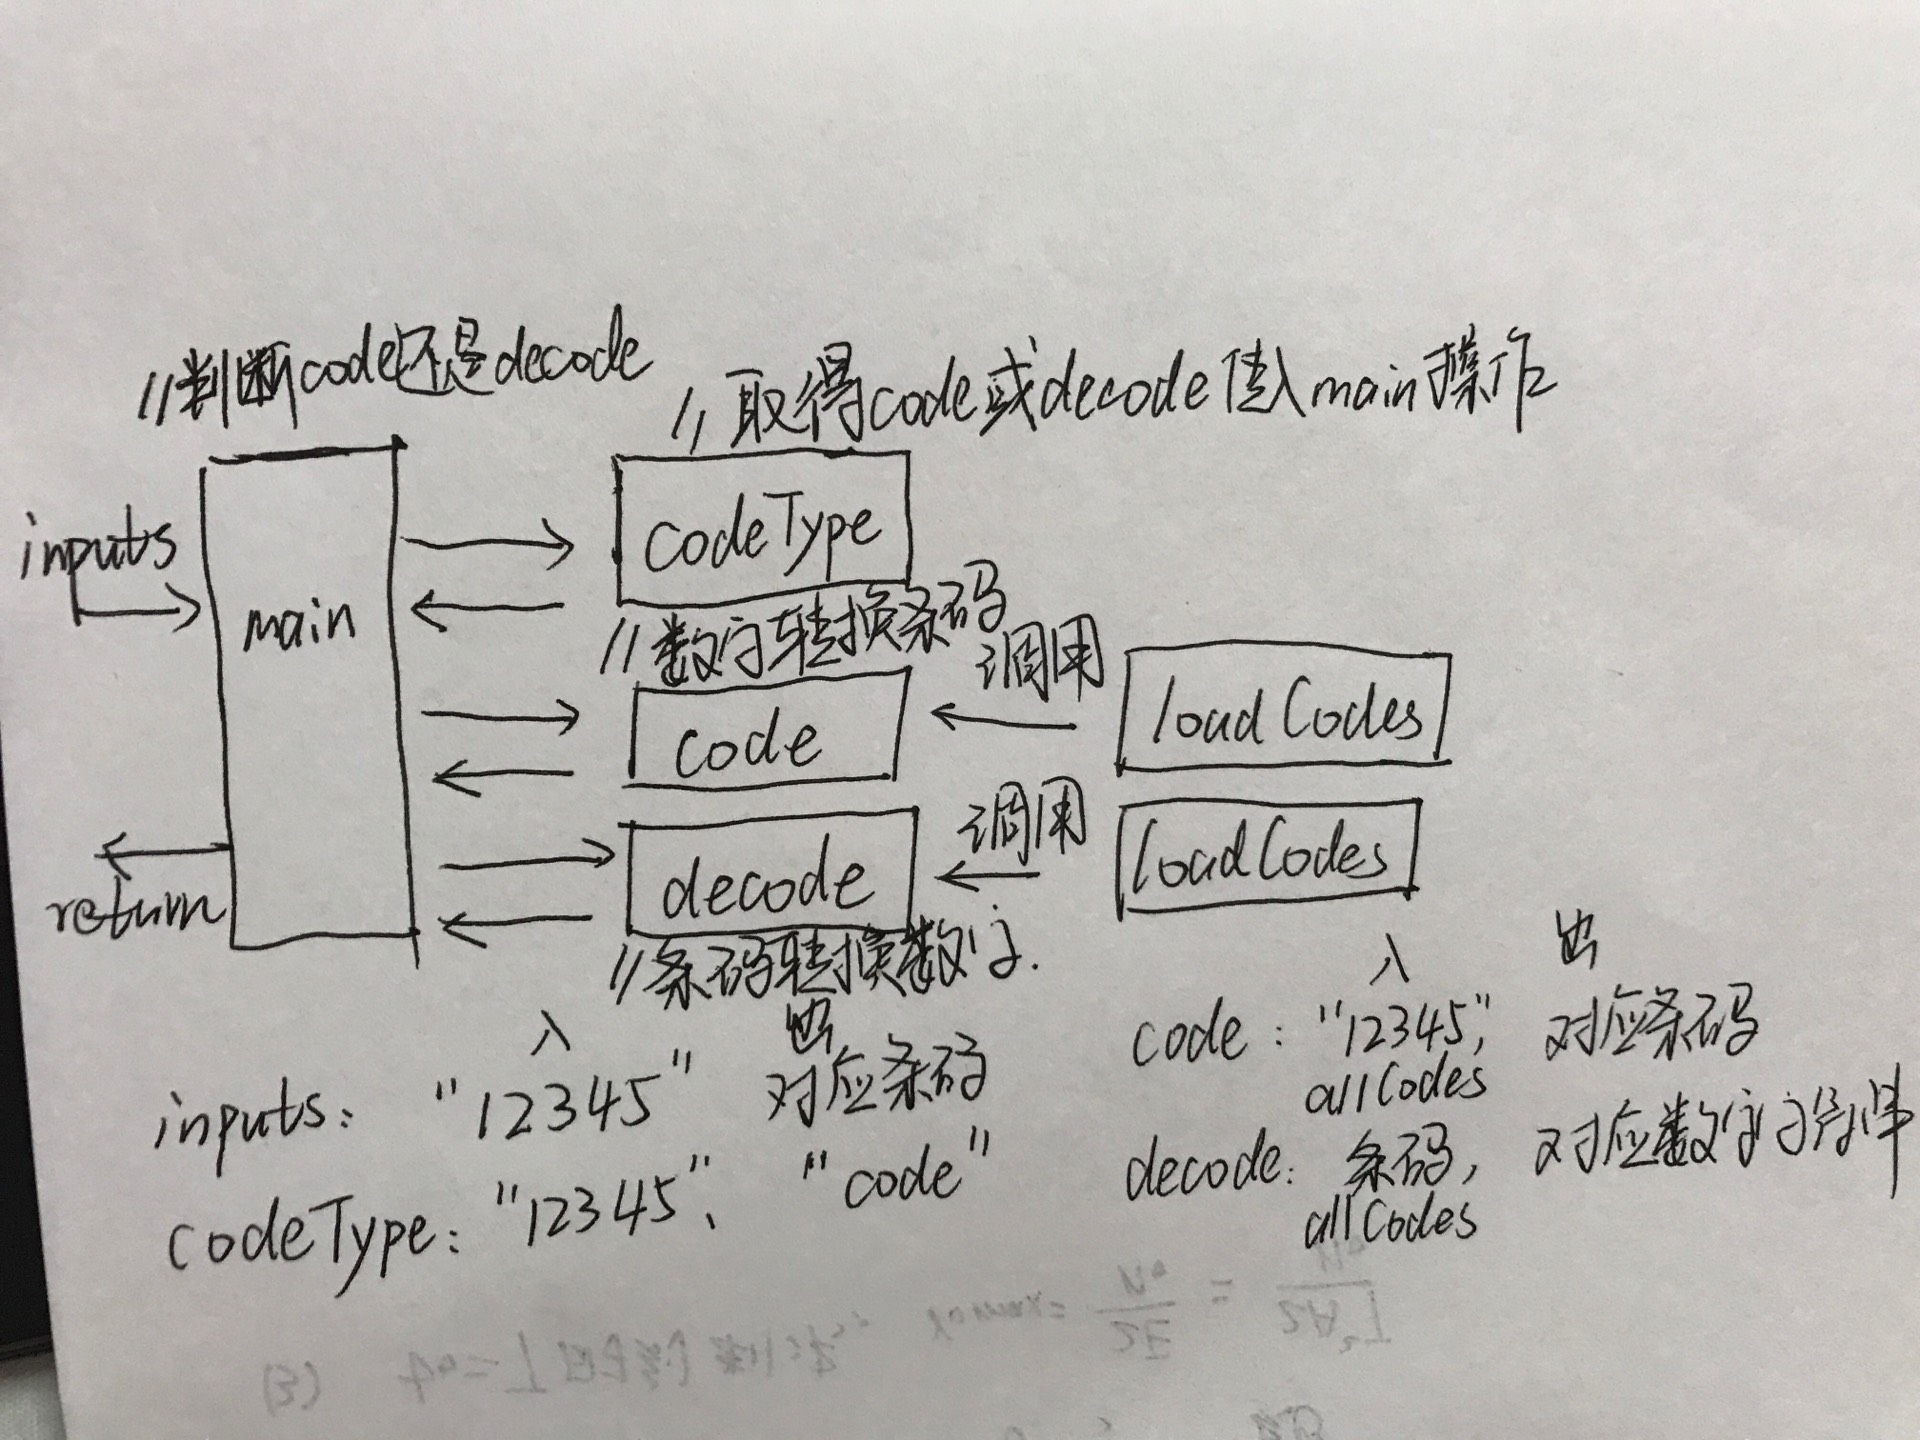 //判断code还是decode
//取得code或decode传入main操作
inputs
main
codeType
//数字转换条码
调用
loadCodes
code
调用
loadCodes
decode
return
//条码转换数字.
入 出
inputs: "12345" 对应条码
codeType: "12345", "code"
入 出
code: "12345," 对应条码
allCodes
decode: 条码, 对应数字字符串
allCodes
(3)